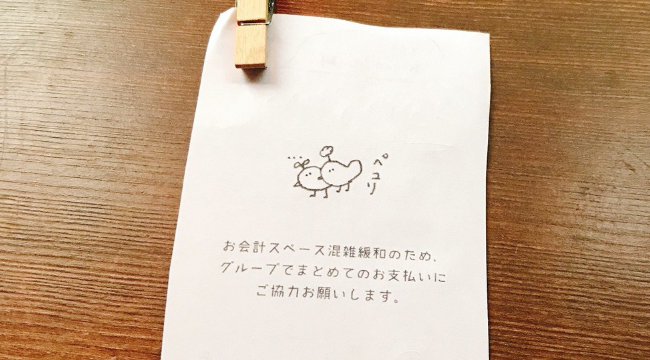 …
ペコリ
お会計スペース混雑緩和のため、
グループでまとめてのお支払いに
ご協力お願いします。